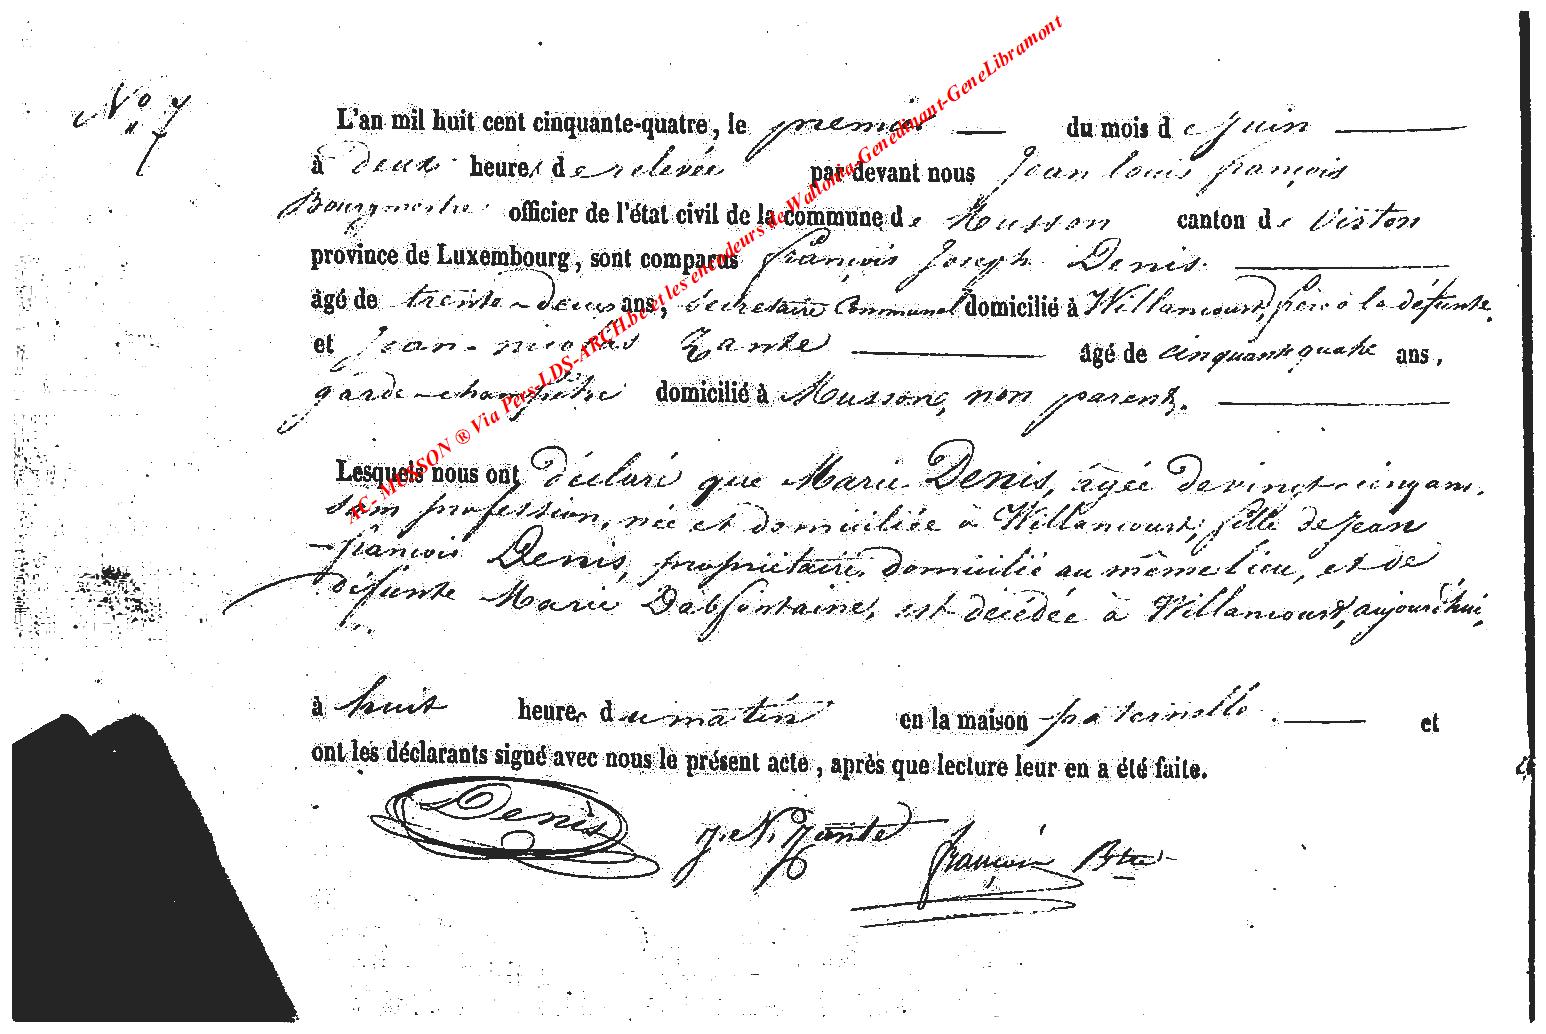 N° 7
L'an mil huit cent cinquante-quatre, le premier du mois de Juin
à deux heures de relevée par devant nous Jean louis françois
Bourgmestre officier de l'état civil de la commune de Musson canton de Virton
province de Luxembourg, sont comparus françois Joseph Denis
âgé de trente-deux ans, secretaire communal domicilié à Willancourt, frère à la défunte,
et Jean-nicolas Zante âgé de cinquante quatre ans,
garde-champêtre domicilié à Musson, non parent.
Lesquels nous ont déclaré que Marie Denis, âgée de vingt-cinq ans,
sans profession, née et domiciliée à Willancourt, fille de Jean
françois Denis, propriétaire, domicilié au même lieu, et de
défunte Marie Dabfontaine, est décédée à Willancourt, aujourd'hui,
à huit heures du matin en la maison paternelle et
ont les déclarants signé avec nous le présent acte, après que lecture leur en a été faite.
Denis J. N. Zante françois Btre
AC- MUSSON ® Via Pers-LDS-ARCH.be et les encodeurs de Wallonia-Genedinant-GeneLibramont